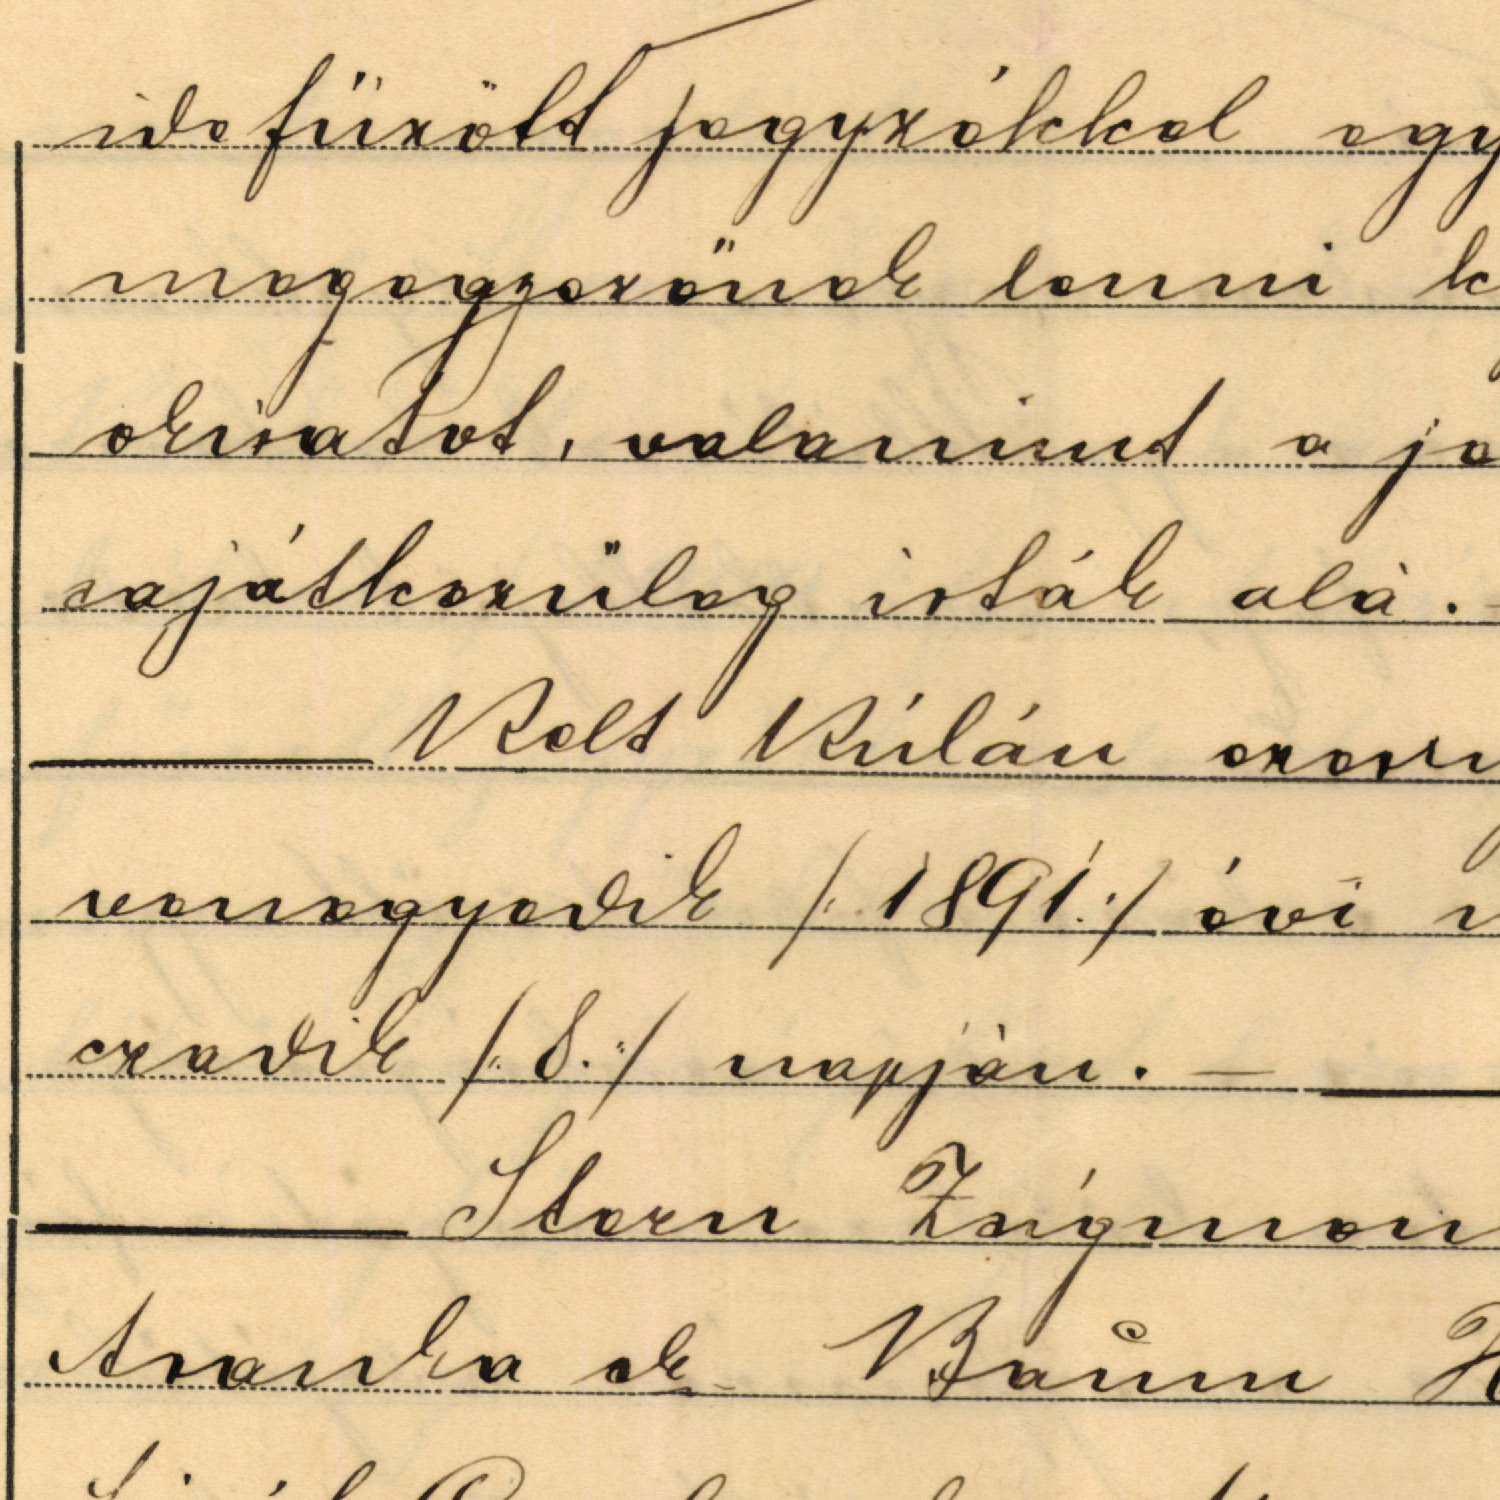 idefüzött jegyzékkel egy
megegyezőnek lenni k
okiratot, valamint a je
sajátkezüleg irták alá.
Kelt Kúlán ezer
venegyedik /: 1891 :/ évi
czadik /: 8. :/ napján.
Stern Zsigmon
Aranka ek Baum H